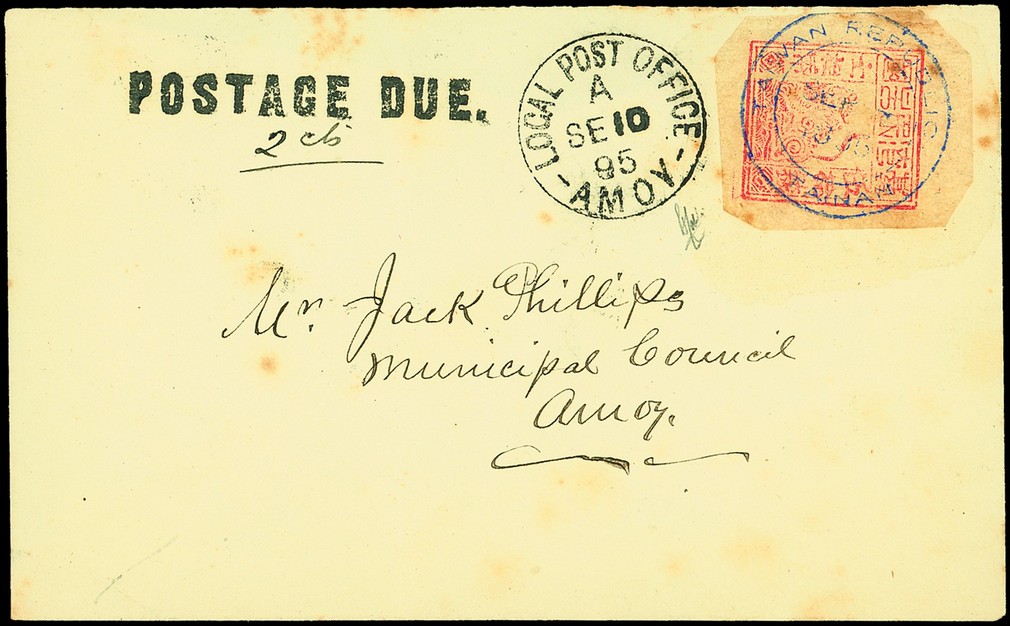 POSTAGE DUE.
2 cts
LOCAL POST OFFICE
A
SE 10
95
- AMOY -
TAIWAN REPUBLIC
SEP
95
TAINAN
Mr. Jack Phillips
Municipal Council
Amoy.